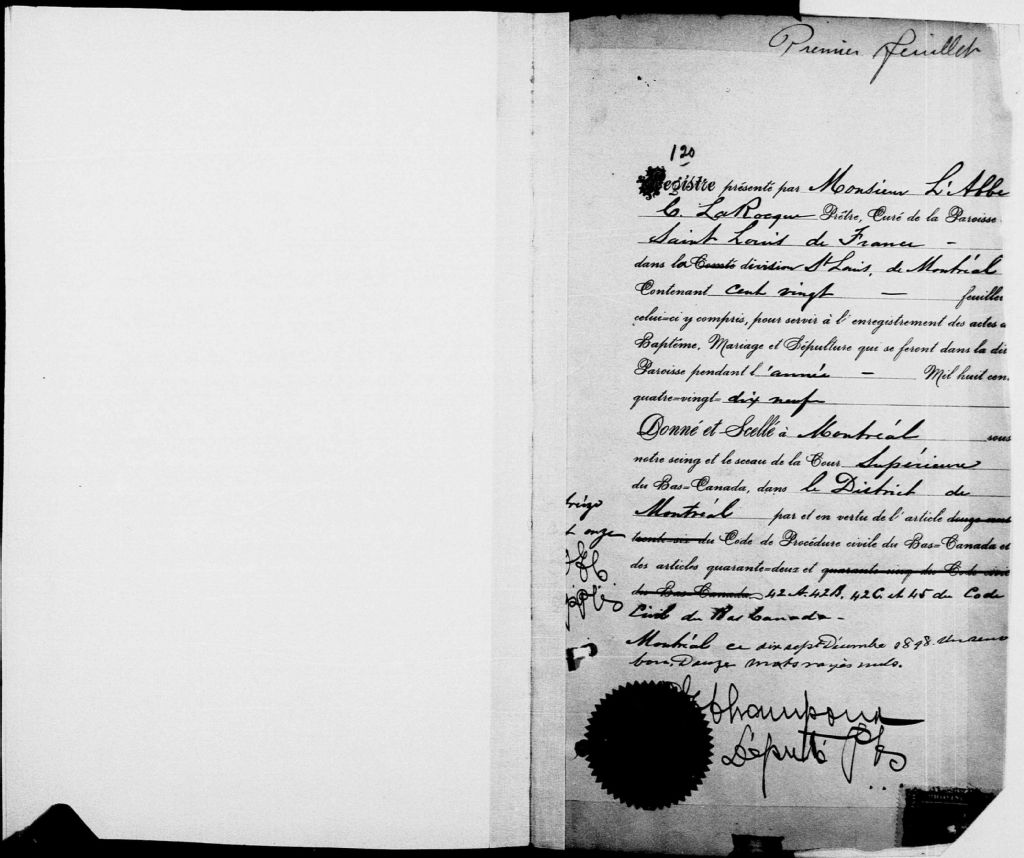 Premier feuillet
120
Registre présenté par Monsieur L'Abbe
C. LaRocque Prêtre, Curé de la Paroisse
Saint Louis de France -
dans la Comté division St Louis, de Montréal
Contenant cent vingt — feuillet
celui=ci y compris, pour servir à l'enregistrement des actes d
Baptême, Mariage et Sépulture qui se feront dans la dit
Paroisse pendant l'année — Mil huit cen
quatre=vingt= dix neuf
Donné et Scellé à Montréal sous
notre seing et le sceau de la Cour Supérieure
du Bas=Canada, dans le District de
Montréal par et en vertu de l'article douze-cent
treize
trente-six du Code de Procédure civile du Bas=Canada et
t onze
des articles quarante=deux et quarante-cinq du Code civil
du Bas Canada, 42 A. 42B, 42C et 45 du Code
Civil du Bas Canada -
Montréal ce dix sept Décembre 1898. Un renv
bon. Douze mots rayés nuls.
Champoux
Député P